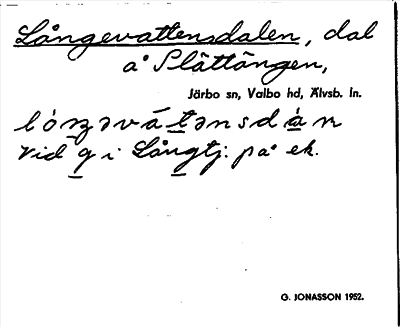 Långevattensdalen, dal
å Slättängen,
Järbo sn, Valbo hd, Älvsb. ln.
lóŋəvát̲ənsdà̲n
vid g i Långtj: på ek.
G. JONASSON 1952.